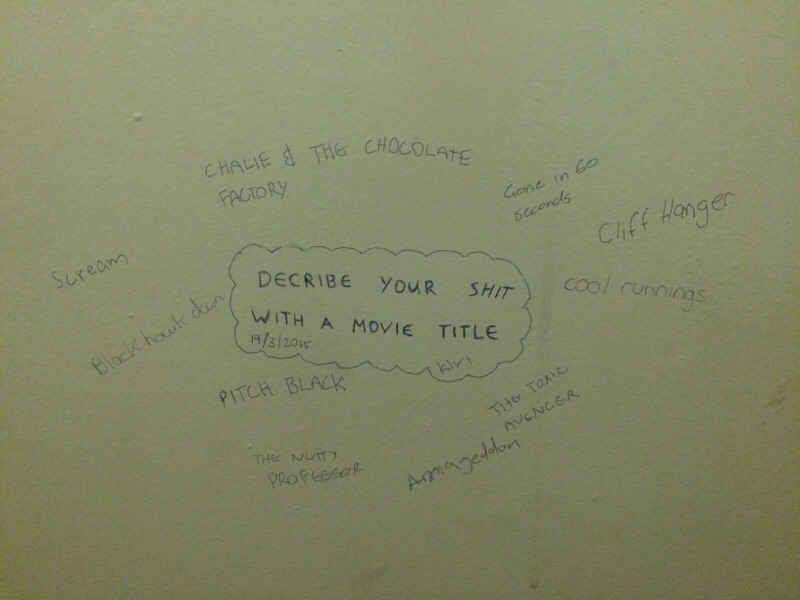 CHALIE & THE CHOCOLATE
FACTORY
Gone in 60
seconds
Cliff Hanger
Scream
cool runnings
Black hawk down
DECRIBE YOUR SHIT
WITH A MOVIE TITLE
19/3/2015
KIWI
PITCH BLACK
THE TOXIC
AVENGER
THE NUTTY
PROFESSOR
Armageddon